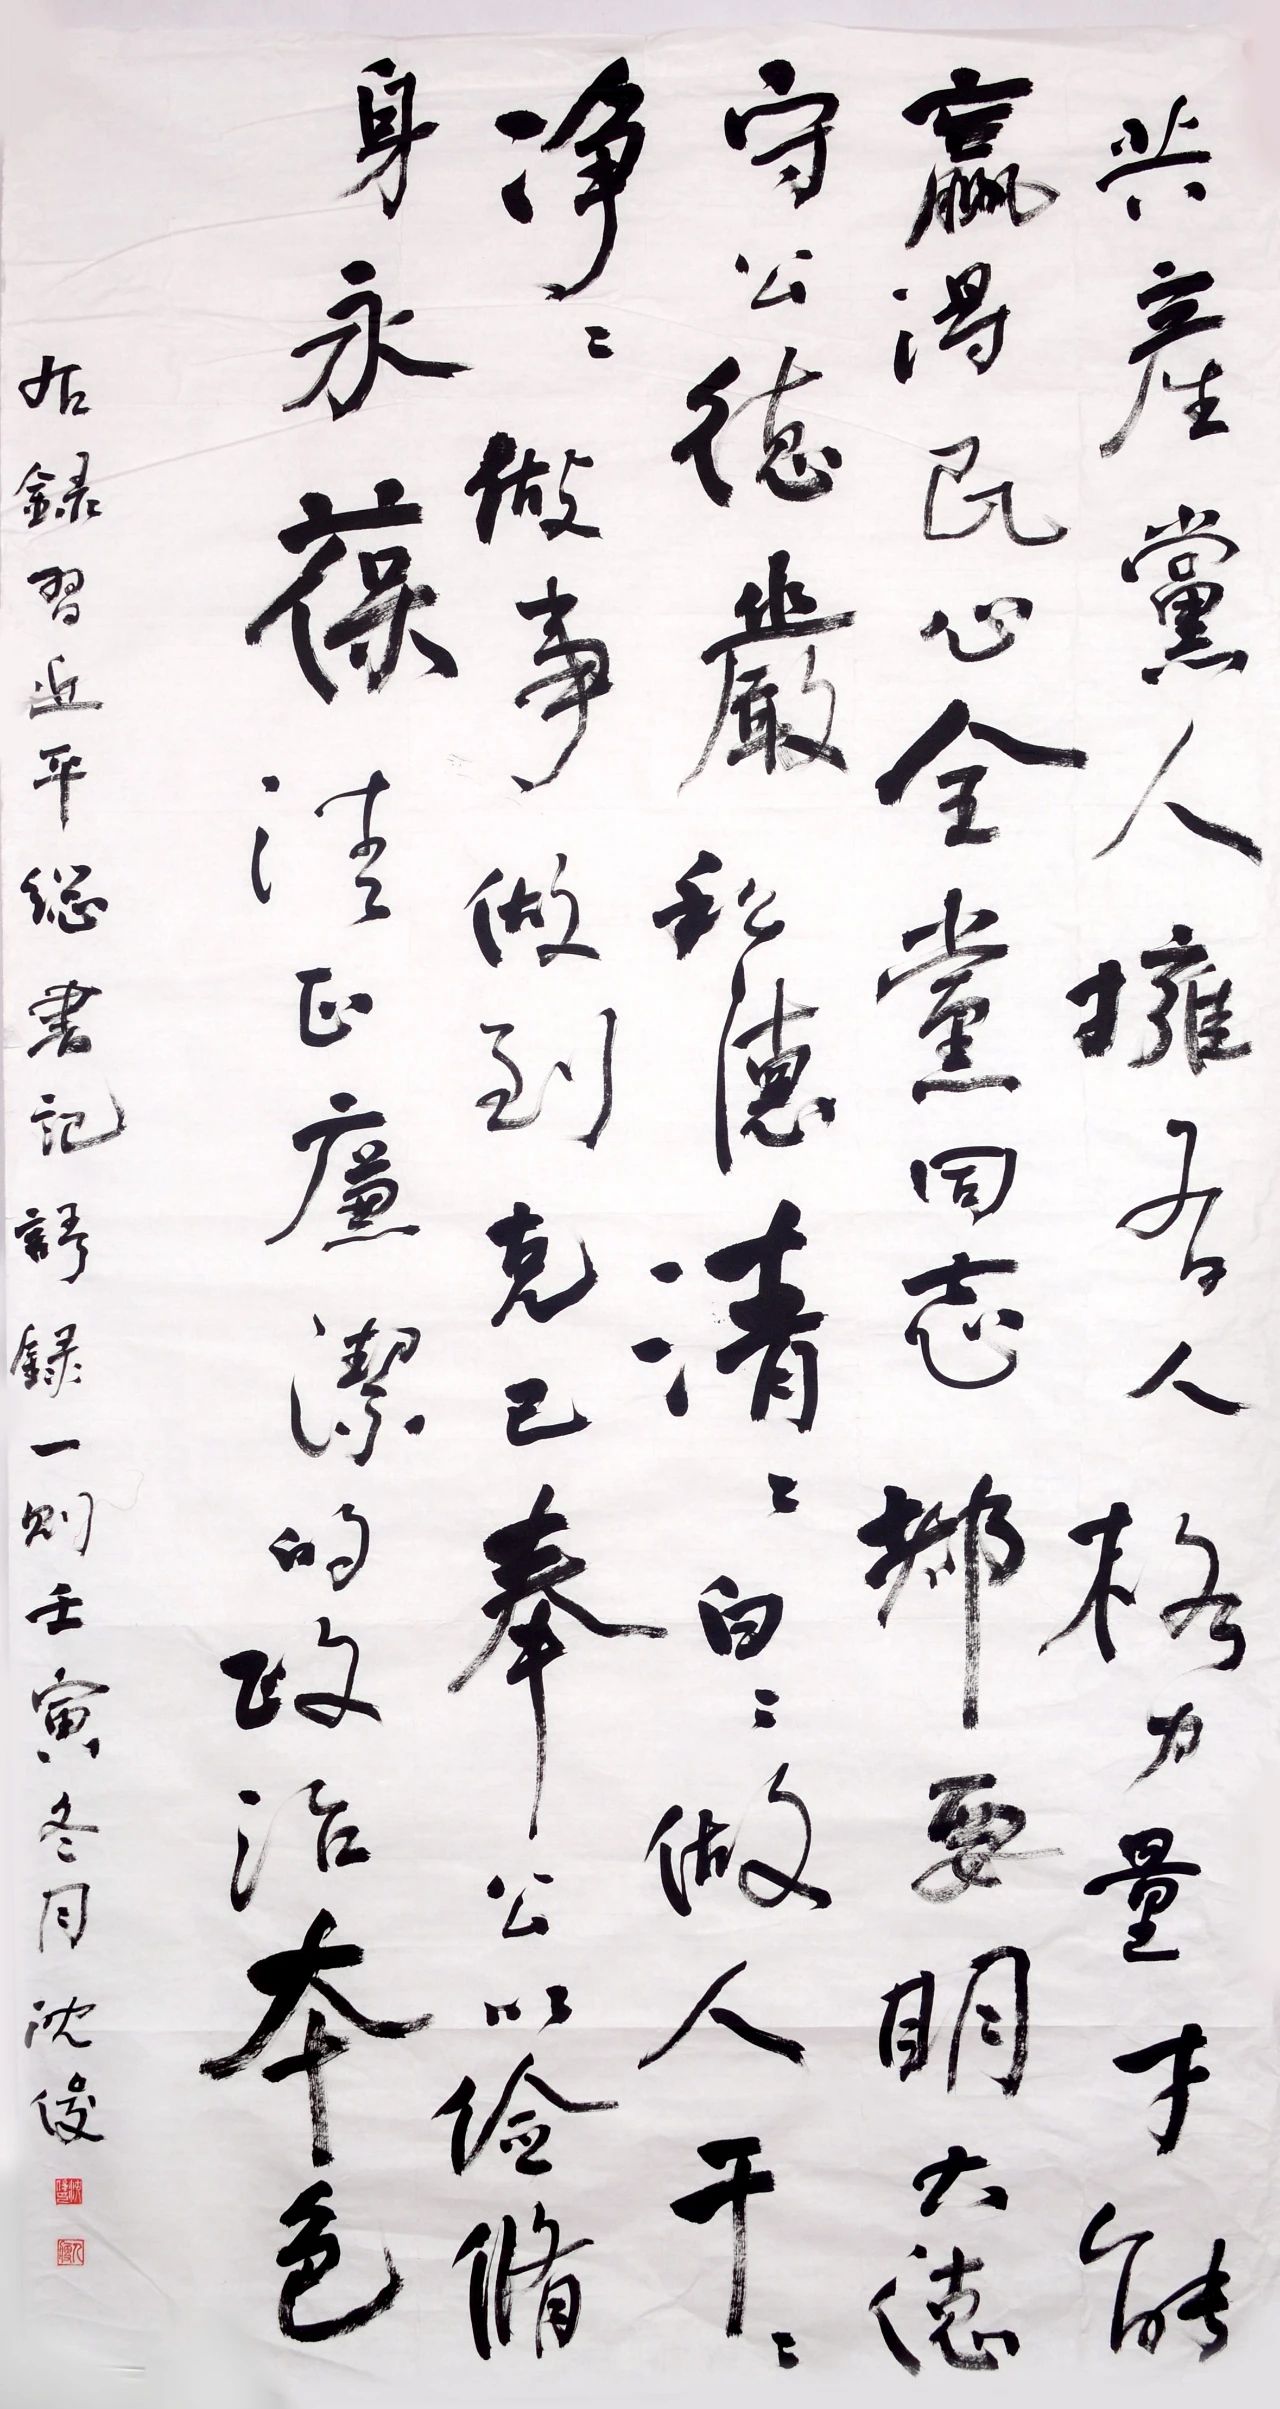 共產黨人擁有人格力量才能
贏得民心全黨同志都要明大德
守公德嚴私德清〻白〻做人干〻
净〻做事做到克己奉公以儉脩
身永葆清正廉潔的政治本色
右錄習近平總書記語錄一則壬寅冬月沈俊